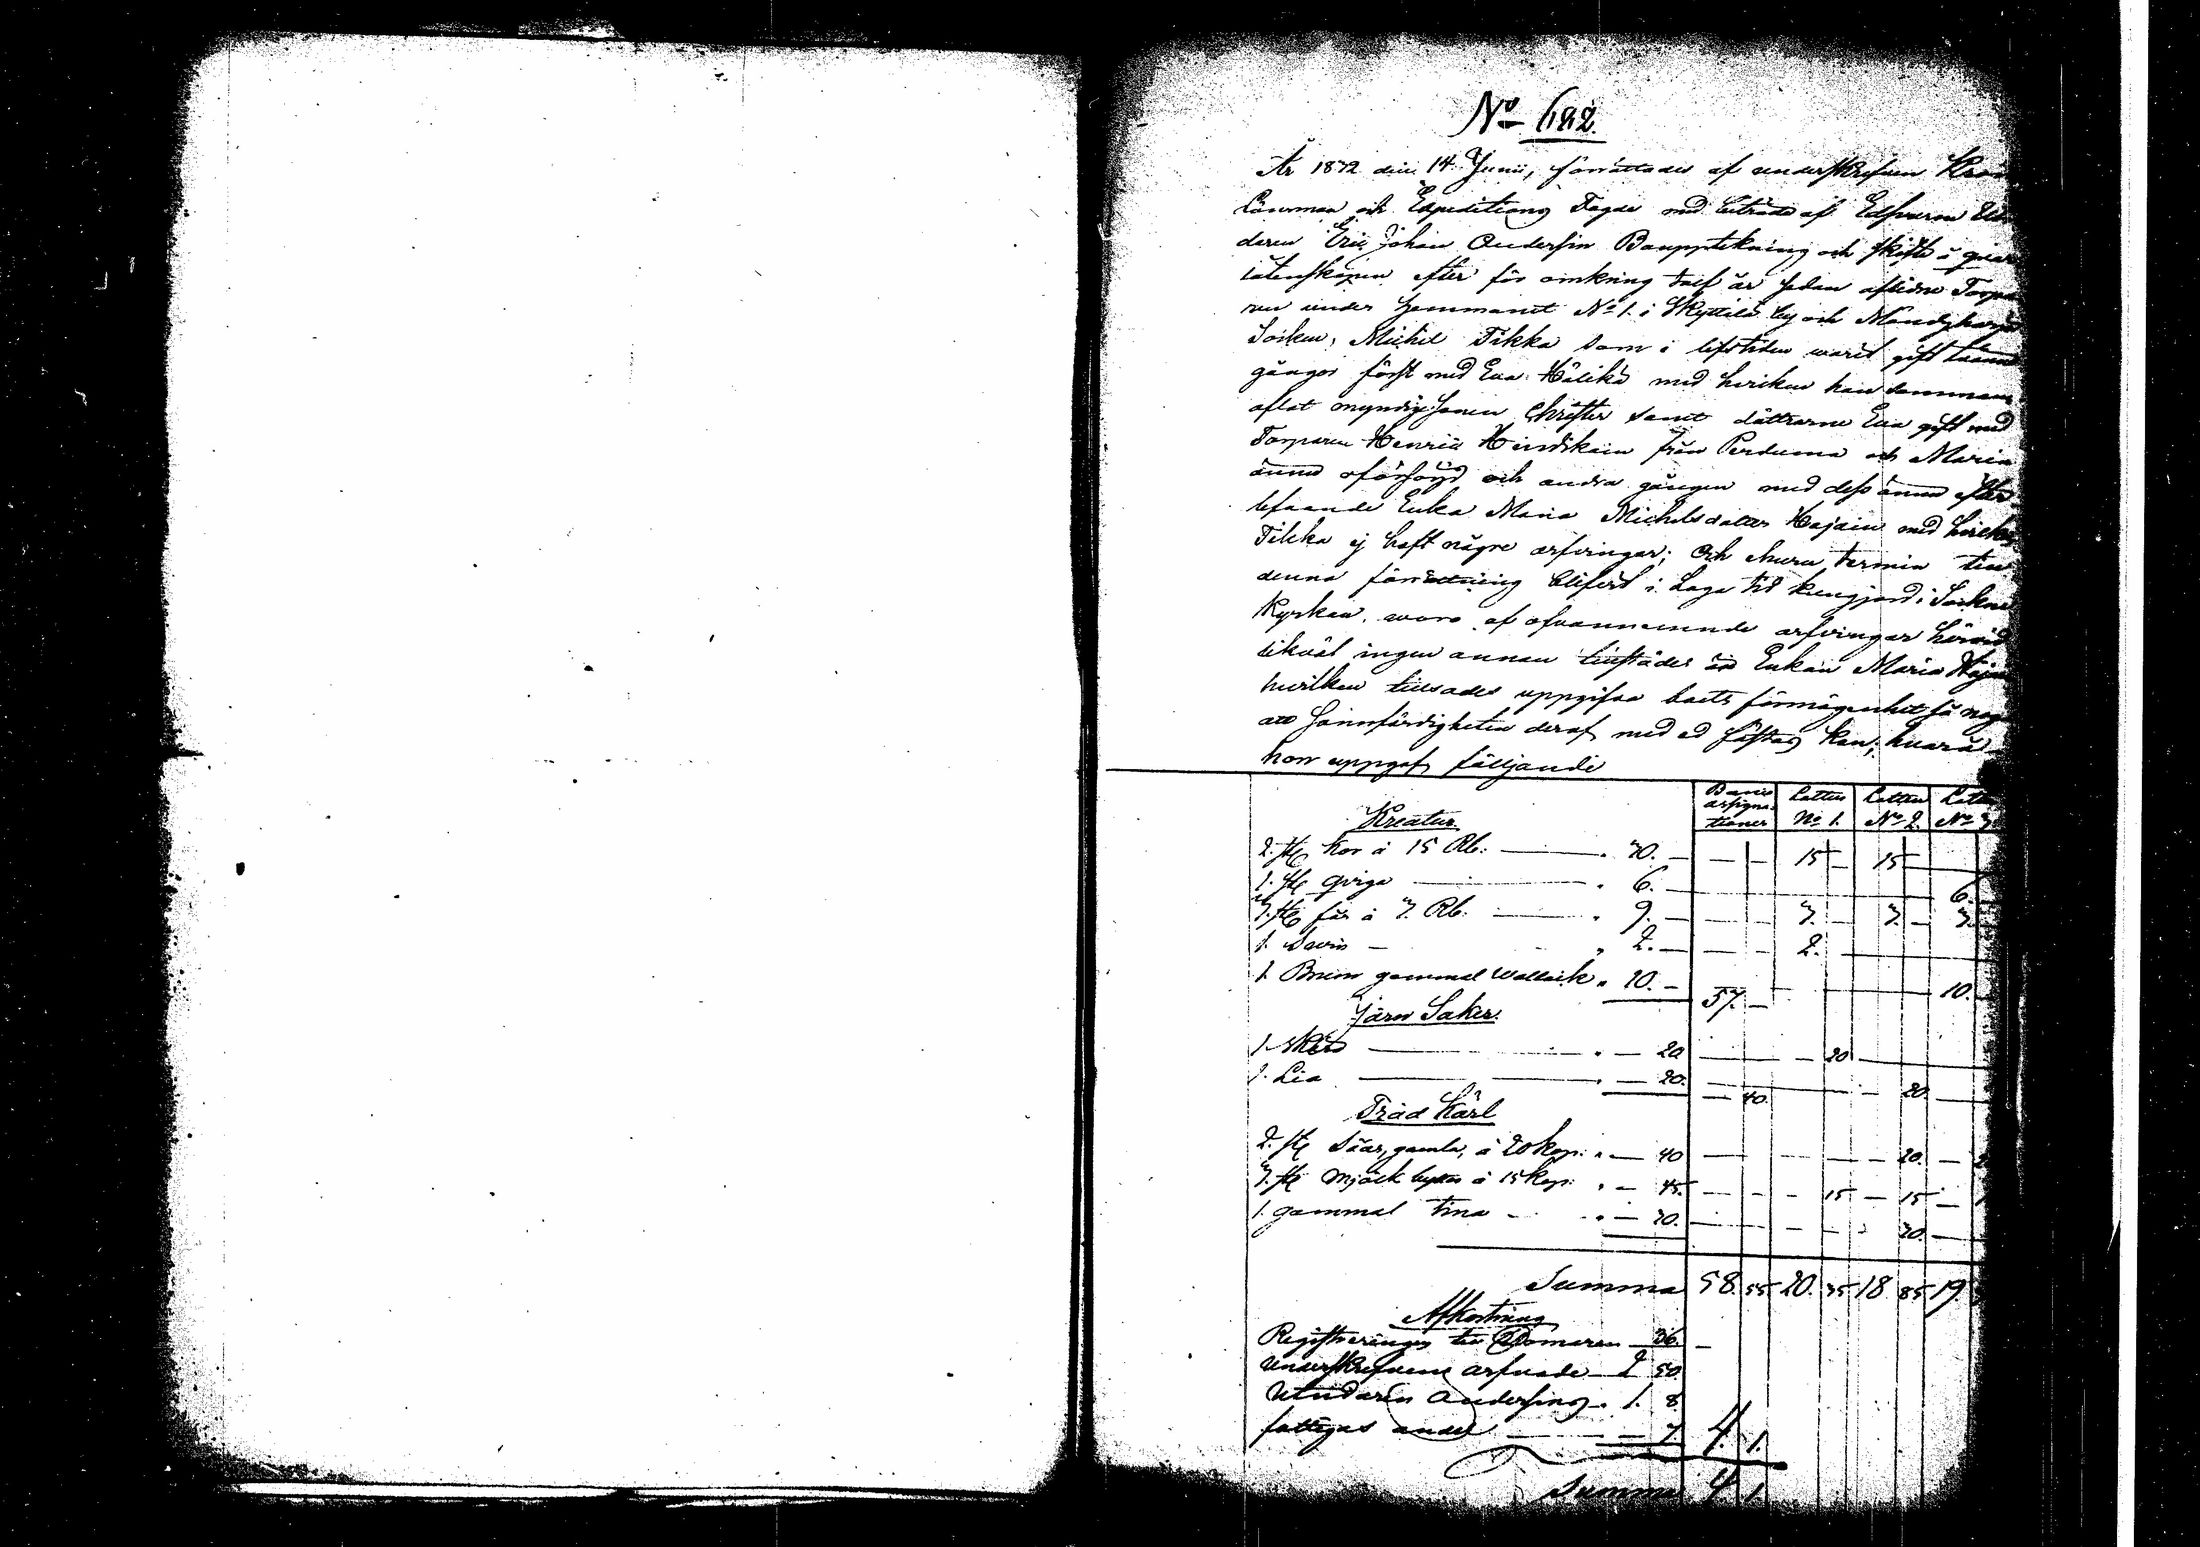 No 682.
År 1832 den 14 Junii, förrättades af underskrefven Krono
Länsman och Expeditions Fogde med biträde af Edsvurne
deren Eric Johan Andersin Bouppteckning och skifte å qvar
låtenskapen efter för omkring tolf år sedan aflidne Torpa
ren under hemmanet No 1. i Skyttilä by och
Socken, Michel Tikka som i lifstiden warit gift tvänne
gångor först med Eva Hälikä med hvilken han samman
aflat myndige sonen Christer samt döttrarne Eva gift med
Torparen Henric Heiskain från Perduma och Maria
ännu oförsörgd och andra gången med dess ännu efter
lefvande Enka Maria Michelsdotter Hajain med hvilken
Tikka ej haft någre arfvingar; Och ehuru termin till
denna förrättning blifvit i Laga tid kungjord i Sockne
Kyrkan, woro af ofvannemnde arfvingar härvid
likväl ingen annan tillstädes än Enkan Maria Haja
hvilken tillsades uppgifva boets förmögenhet så noga
att sannfärdigheten deraf med ed fästas kan; hvarå
hon uppgaf fölljande
Banco assigna tioner | Lotten No 1. | Lotten No 2. | Lotten No 3
Kreatur.
2. st kor á 15 Rb: — 30. — — — 15 — 15 —
1. st qviga — 6. — 6.
3. st får á 3. Rb. — 9. — — — 3. — 3. — 3.
1. Swin — 2. — — — 2. —
1. Brun gammal Wallack 10. — 57. — 10.
Järn Saker.
1. Skära — 20 — 20 —
1. Lia — 20. — 40. — 20. —
Träd Kärl
2. st Såar, gamla, á 20 kop: — 40 — — 20. — 2
3. st mjölk byttor á 15 kop: — 45. — — 15 — 15 — 1
1. gammal tina — 30. — — 30. —
Summa 58. 55 20. 35 18 85 19.
Afkortning
Registreringen till Domaren — 36. —
Underskrefvens arfvode — 2 50.
Utridaren Andersins — 1. 8
fattigas andel — 7. 4. 1.
Summa 4. 1.